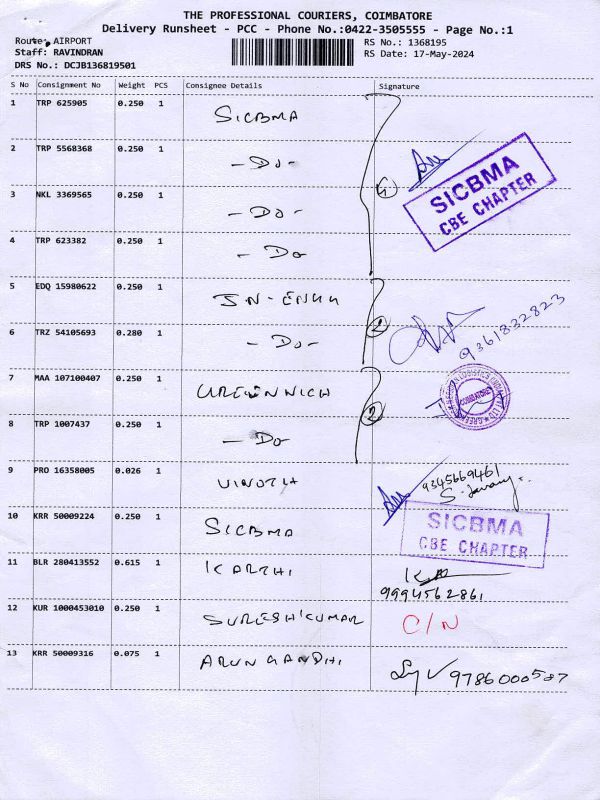 THE PROFESSIONAL COURIERS, COIMBATORE
Delivery Runsheet - PCC - Phone No.:0422-3505555 - Page No.:1
Route: AIRPORT RS No.: 1368195
Staff: RAVINDRAN RS Date: 17-May-2024
DRS No.: DCJB136819501
S No Consignment No Weight PCS Consignee Details Signature
1 TRP 625905 0.250 1 SICBMA
2 TRP 5568368 0.250 1 - Do -
SICBMA
CBE CHAPTER
3 NKL 3369565 0.250 1 - Do - 4
4 TRP 623382 0.250 1 - Do
5 EDQ 15980622 0.250 1
6 TRZ 54105693 0.280 1 - Do - 2 9361832823
7 MAA 107100407 0.250 1
COIMBATORE
8 TRP 1007437 0.250 1 - Do 2
9 PRO 16358005 0.026 1 VINOTH 9345669461
10 KRR 50009224 0.250 1 SICBMA
SICBMA
CBE CHAPTER
11 BLR 280413552 0.615 1 KARTHI
9994562861
12 KUR 1000453010 0.250 1 SURESHKUMAR C/N
13 KRR 50009316 0.075 1 ARUN GANDHI 9786000587